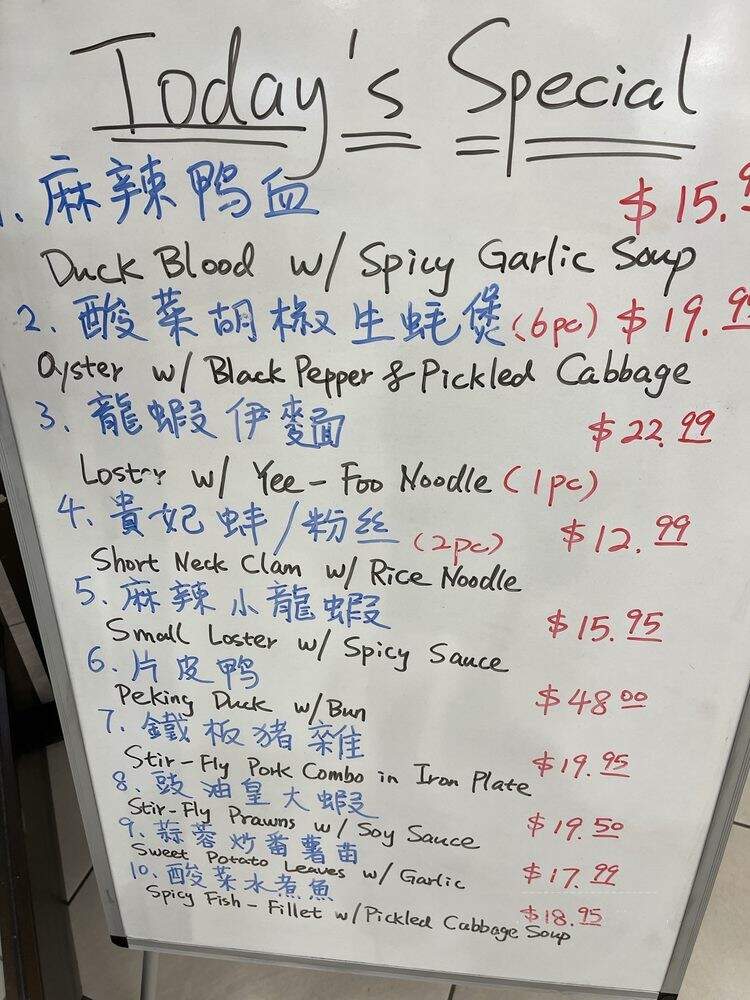 Today's Special
1. 麻辣鴨血 $15.9
Duck Blood w/ Spicy Garlic Soup
2. 酸菜胡椒生蚝煲(6pc) $19.95
Oyster w/ Black Pepper & Pickled Cabbage
3. 龍蝦伊麵 $22.99
Loster w/ Yee-Foo Noodle (1pc)
4. 貴妃蚌/粉丝 (2pc) $12.99
Short Neck Clam w/ Rice Noodle
5. 麻辣小龍蝦 $15.95
Small Loster w/ Spicy Sauce
6. 片皮鴨 $48.00
Peking Duck w/Bun
7. 鐵板猪雜 $19.95
Stir-Fly Pork Combo in Iron Plate
8. 豉油皇大蝦 $19.50
Stir-Fly Prawns w/ Soy Sauce
9. 蒜蓉炒番薯苗 $17.99
Sweet Potato Leaves w/ Garlic
10. 酸菜水煮魚 $18.95
Spicy Fish-Fillet w/Pickled Cabbage Soup